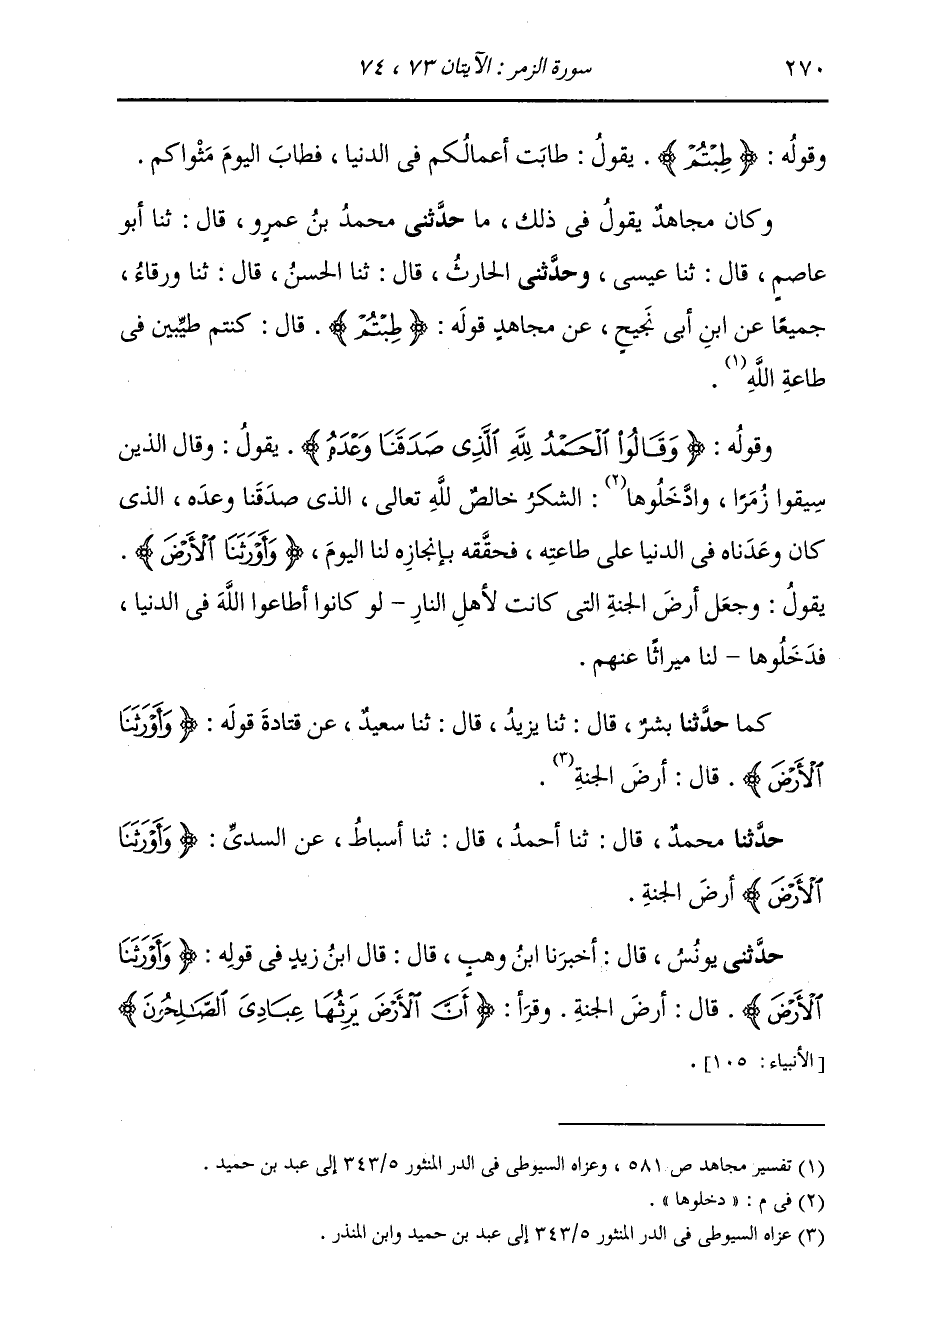 ٢٧٠ سورة الزمر : الآيتان ٧٣ ، ٧٤
وقولُه : ﴿ طِبْتُمْ ﴾ . يقولُ : طابَت أعمالُكم فى الدنيا ، فطابَ اليومَ مَثْواكم .
وكان مجاهدٌ يقولُ فى ذلك ، ما حدَّثنى محمدُ بنُ عمرٍو ، قال : ثنا أبو
عاصمٍ ، قال : ثنا عيسى ، وحدَّثنى الحارثُ ، قال : ثنا الحسنُ ، قال : ثنا ورقاءُ ،
جميعًا عن ابنِ أبى نَجيحٍ ، عن مجاهدٍ قولَه : ﴿ طِبْتُمْ ﴾ . قال : كنتم طيِّبين فى
طاعةِ اللَّهِ(١) .
وقولُه : ﴿ وَقَالُوا۟ ٱلْحَمْدُ لِلَّهِ ٱلَّذِى صَدَقَنَا وَعْدَهُۥ ﴾ . يقولُ : وقال الذين
سِيقوا زُمَرًا ، وادَّخَلُوها(٢) : الشكرُ خالصٌ للَّهِ تعالى ، الذى صدَقَنا وعدَه ، الذى
كان وعَدَناه فى الدنيا على طاعتِه ، فحقَّقه بإنجازِه لنا اليومَ ، ﴿ وَأَوْرَثَنَا ٱلْأَرْضَ ﴾ .
يقولُ : وجعَل أرضَ الجنةِ التى كانت لأهلِ النارِ – لو كانوا أطاعوا اللَّهَ فى الدنيا ،
فدَخَلُوها – لنا ميراثًا عنهم .
كما حدَّثنا بشرٌ ، قال : ثنا يزيدُ ، قال : ثنا سعيدٌ ، عن قتادةَ قولَه : ﴿ وَأَوْرَثَنَا
ٱلْأَرْضَ ﴾ . قال : أرضَ الجنةِ(٣) .
حدَّثنا محمدٌ ، قال : ثنا أحمدُ ، قال : ثنا أسباطُ ، عن السدىِّ : ﴿ وَأَوْرَثَنَا
ٱلْأَرْضَ ﴾ أرضَ الجنةِ .
حدَّثنى يونُسُ ، قال : أخبرَنا ابنُ وهبٍ ، قال : قال ابنُ زيدٍ فى قولِه : ﴿ وَأَوْرَثَنَا
ٱلْأَرْضَ ﴾ . قال : أرضَ الجنةِ . وقرَأ : ﴿ أَنَّ ٱلْأَرْضَ يَرِثُهَا عِبَادِىَ ٱلصَّـٰلِحُونَ ﴾
[ الأنبياء : ١٠٥ ] .
(١) تفسير مجاهد ص ٥٨١ ، وعزاه السيوطى فى الدر المنثور ٣٤٣/٥ إلى عبد بن حميد .
(٢) فى م : « دخلوها » .
(٣) عزاه السيوطى فى الدر المنثور ٣٤٣/٥ إلى عبد بن حميد وابن المنذر .